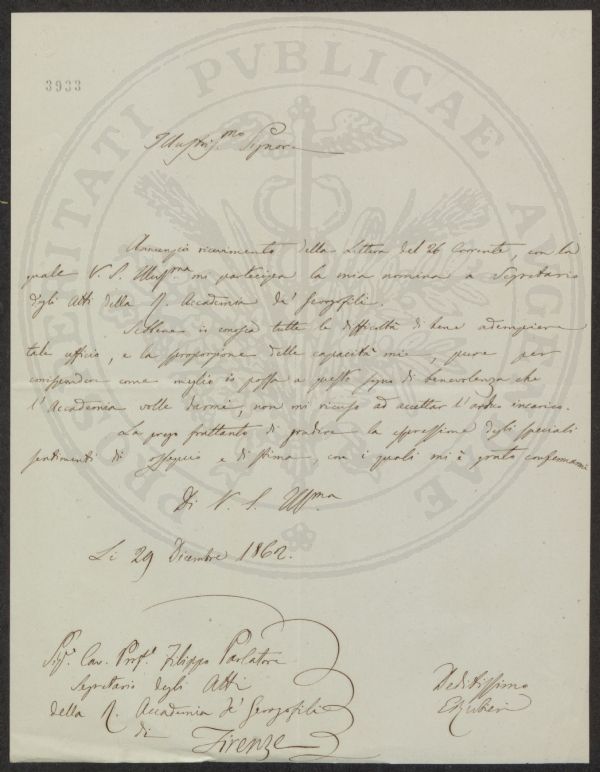 3933
PROSPERITATI PVBLICAE AVGENDAE
Illustriss.mo Signore
Annunzio ricevimento della Lettera del 26 Corrente, con la
quale V. S. Illustss.ma mi partecipa la mia nomina a Segretario
degli Atti della R. Accademia de' Georgofili.
Sebbene io conosca tutte le difficoltà di bene adempiere
tale ufficio, e la sproporzione delle capacità mie, pure per
corrispondere come meglio io possa a questo segno di benevolenza che
l'Accademia volle darmi, non mi ricuso ad accettar l' incarico.
La prego frattanto di gradire la espressione degli speciali
sentimenti di ossequio e di stima, con i quali mi è grato confermarmi
Di V. S. Ill.ma
Li 29 Dicembre 1862.
Sig.r Cav. Prof.e Filippo Parlatore
Segretario degli Atti
della R. Accademia d' Georgofili
di Firenze
Deditissimo
ERubieri